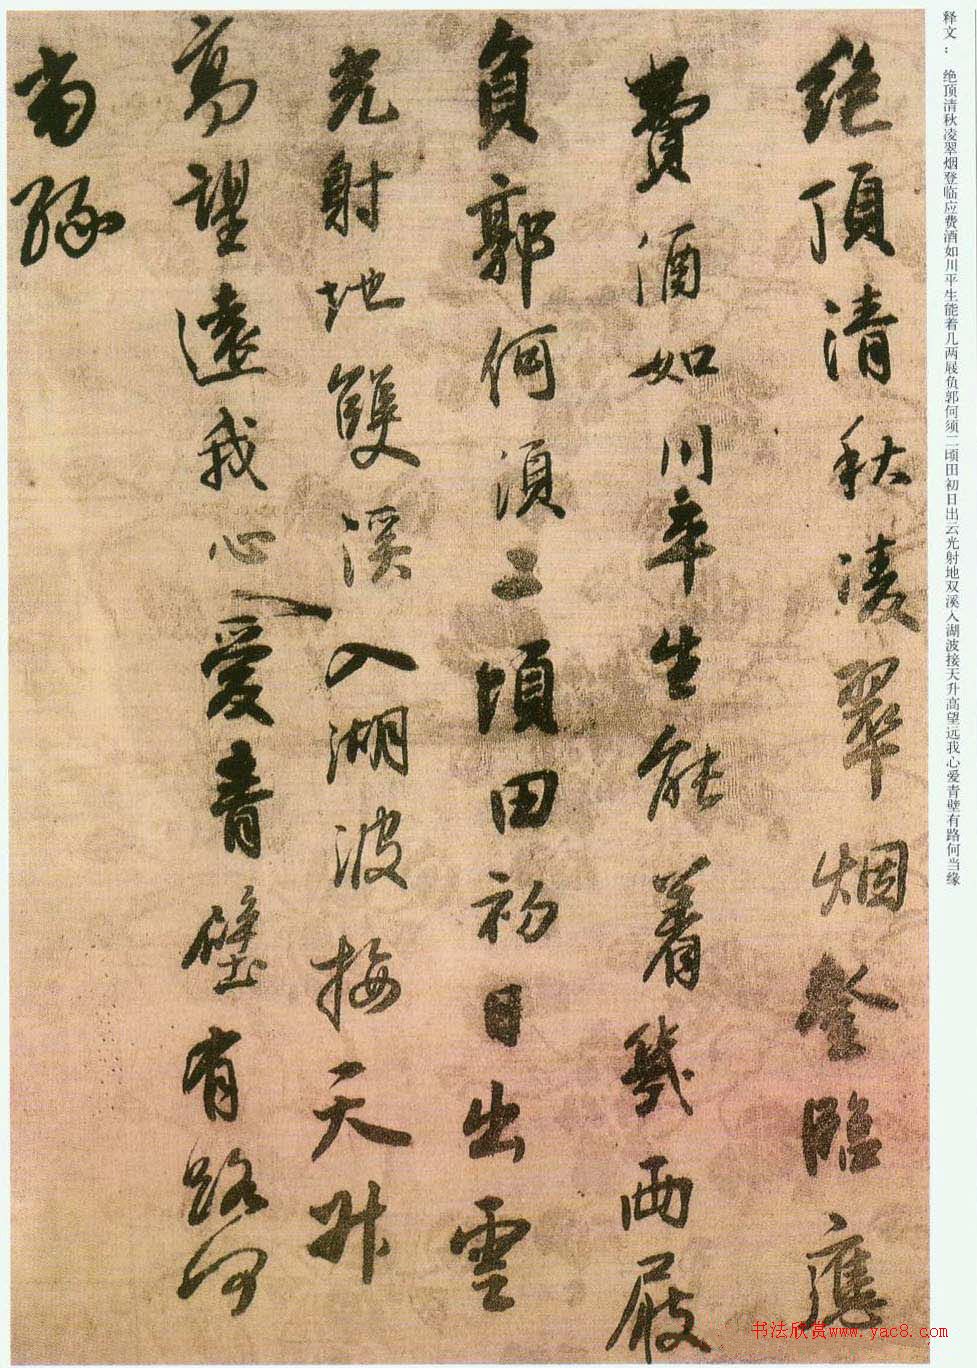 释文： 绝顶清秋凌翠烟登临应费酒如川平生能着几两屐负郭何须二顷田初日出云光射地双溪入湖波接天升高望远我心爱青壁有路何当缘
絶頂清秋凌翠烟登臨應
費酒如川平生能着幾两屐
負郭何須二頃田初日出雲
光射地雙溪入湖波接天升
高望遠我心愛青壁有路何
當緣
书法欣赏www.yac8.com